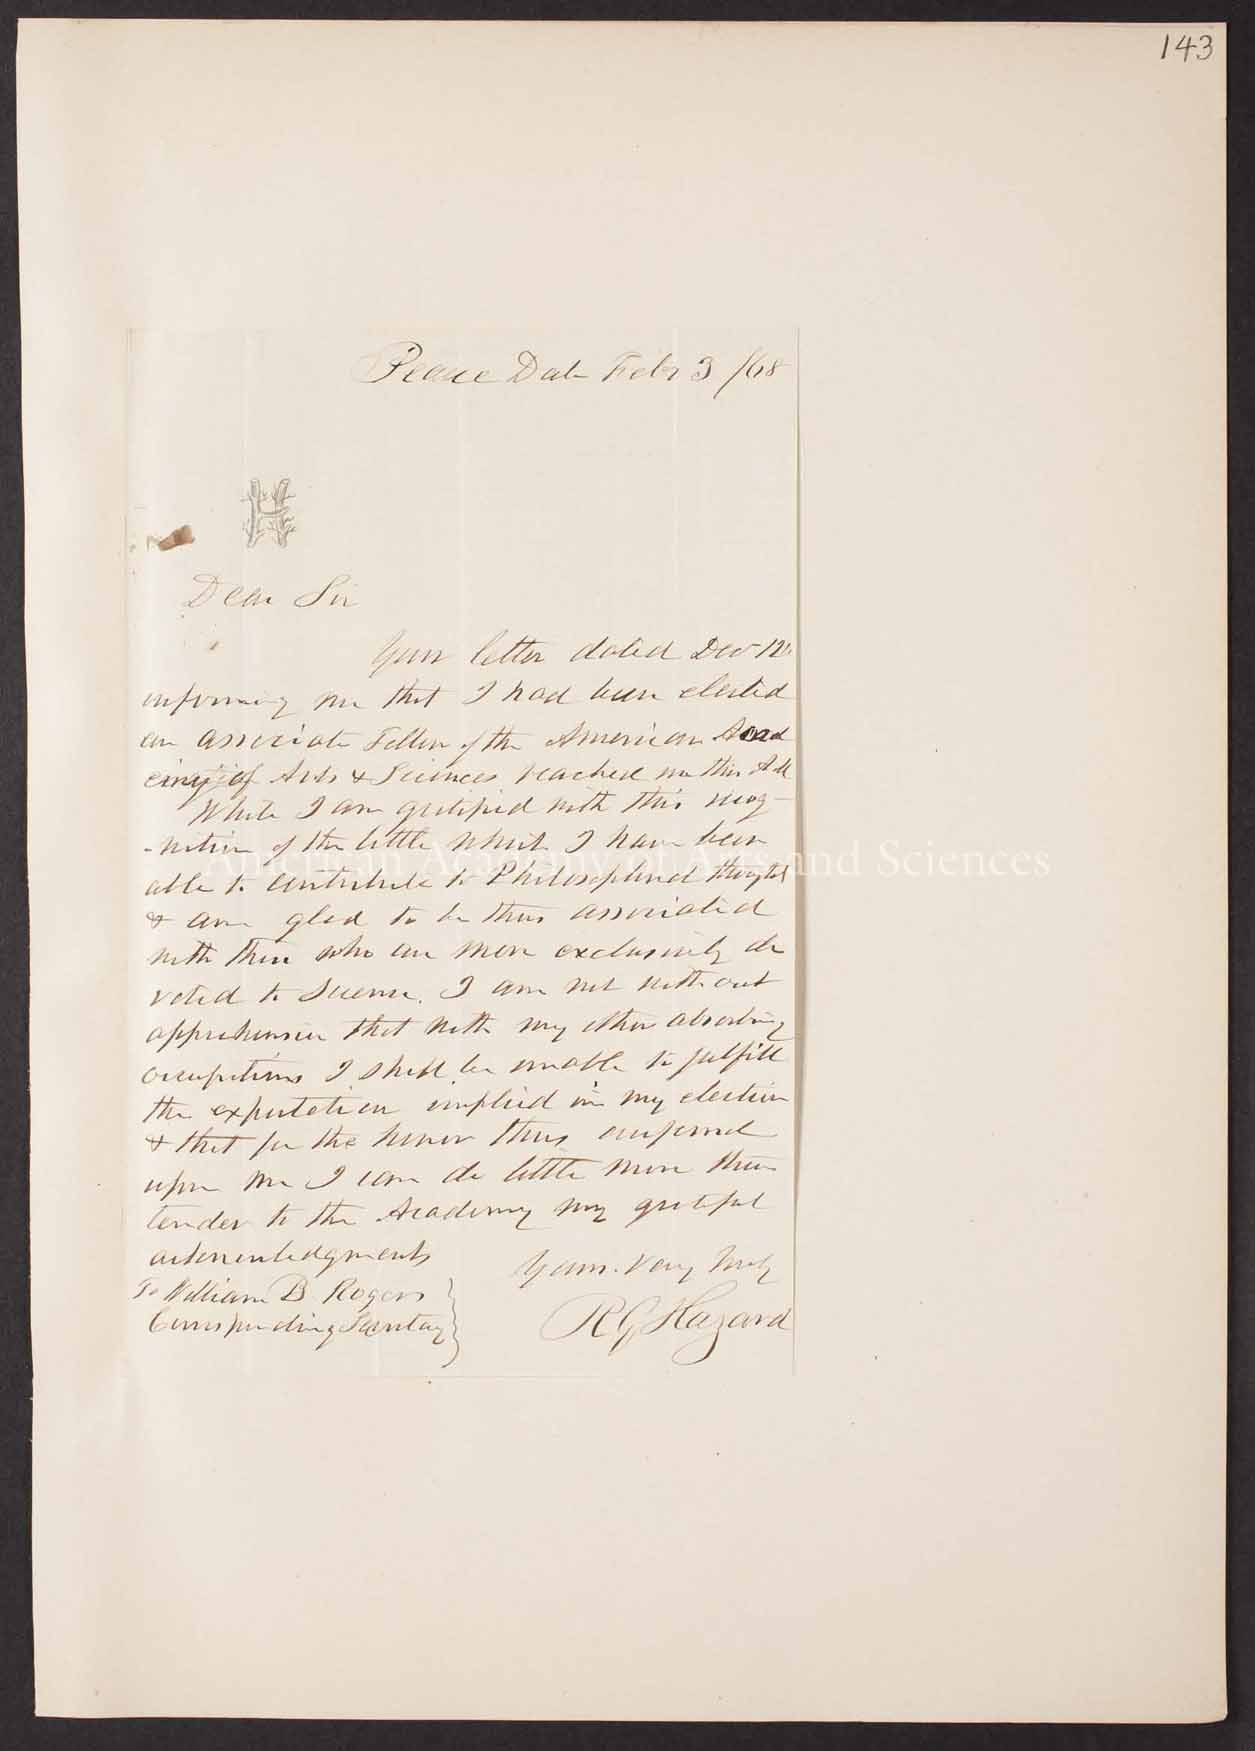 143
Peace Dale Feby 3 /68
H
Dear Sir
Your letter dated Dec 12
informing me that I had been elected
an associate Fellow of the American Acad
emy of Arts & Sciences reached me this
While I am gratified with this recog-
-nition of the little which I have been
able to contribute to Philosophical thought
& am glad to be thus associated
with those who are more exclusively de
voted to Science. I am not without
apprehension that with my other absorbing
occupations I shall be unable to fulfill
the expectation implied in my election
& that for the honor thus conferred
upon me I can do little more than
tender to the Academy my grateful
acknowledgments
Yours Very truly
To William B Rogers
Corresponding Secretary
R G Hazard
American Academy of Arts and Sciences